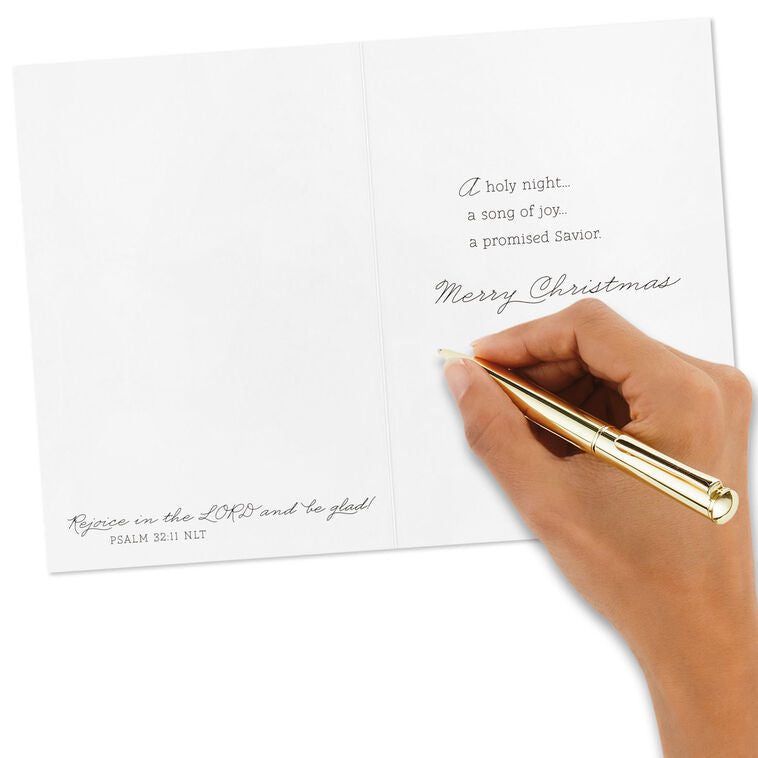 A holy night...
a song of joy...
a promised Savior.
Merry Christmas
Rejoice in the LORD and be glad!
PSALM 32:11 NLT